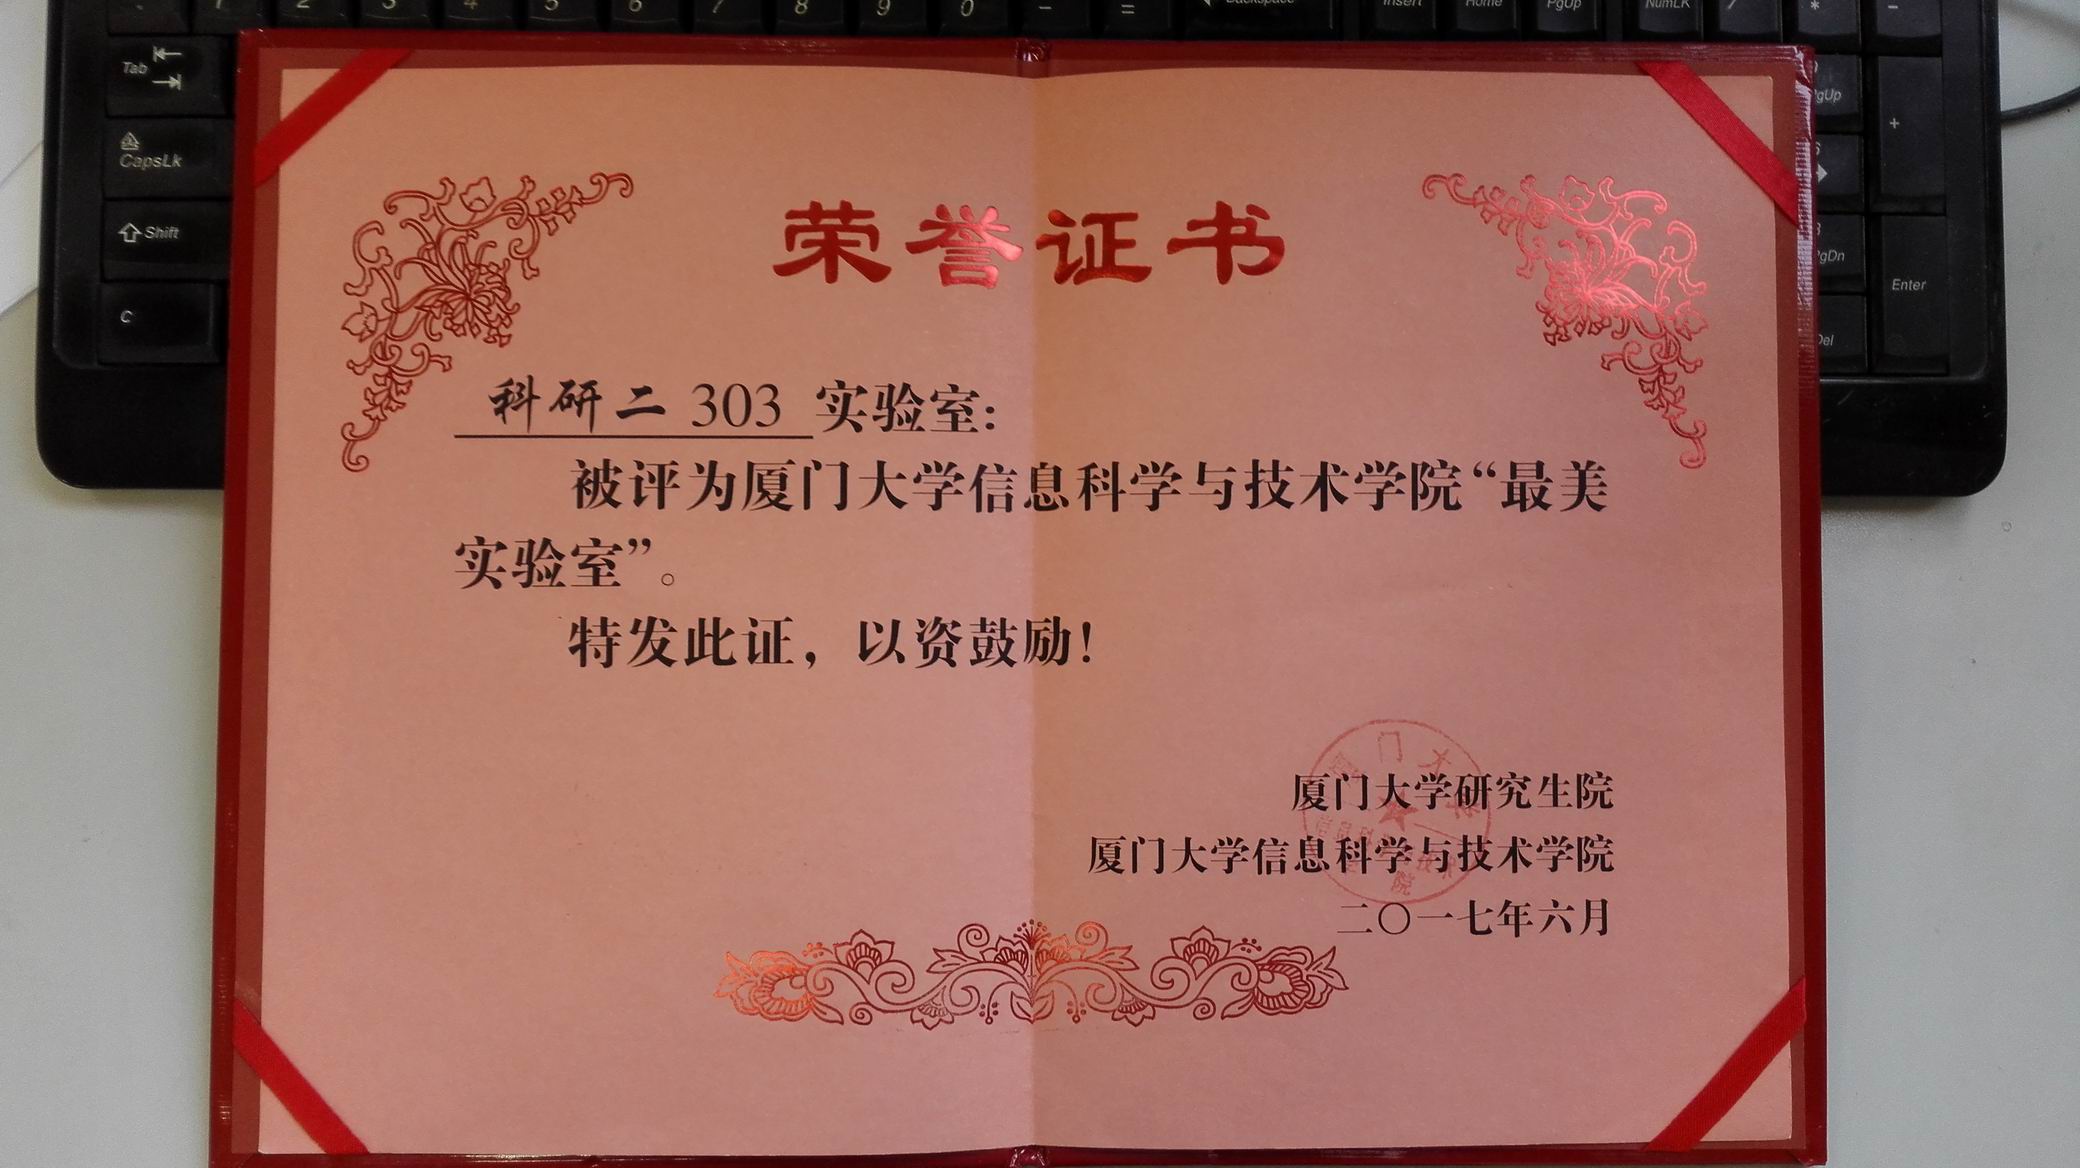 1 2 3 4 5 6 7 8 9 0 - = Backspace Insert Home PgUp NumLK / * -
Tab
PgUp
+
CapsLk
Shift
PgDn
C
Enter
Del
荣誉证书
科研二 303 实验室:
被评为厦门大学信息科学与技术学院“最美
实验室”。
特发此证，以资鼓励!
厦门大学研究生院
厦门大学信息科学与技术学院
二〇一七年六月